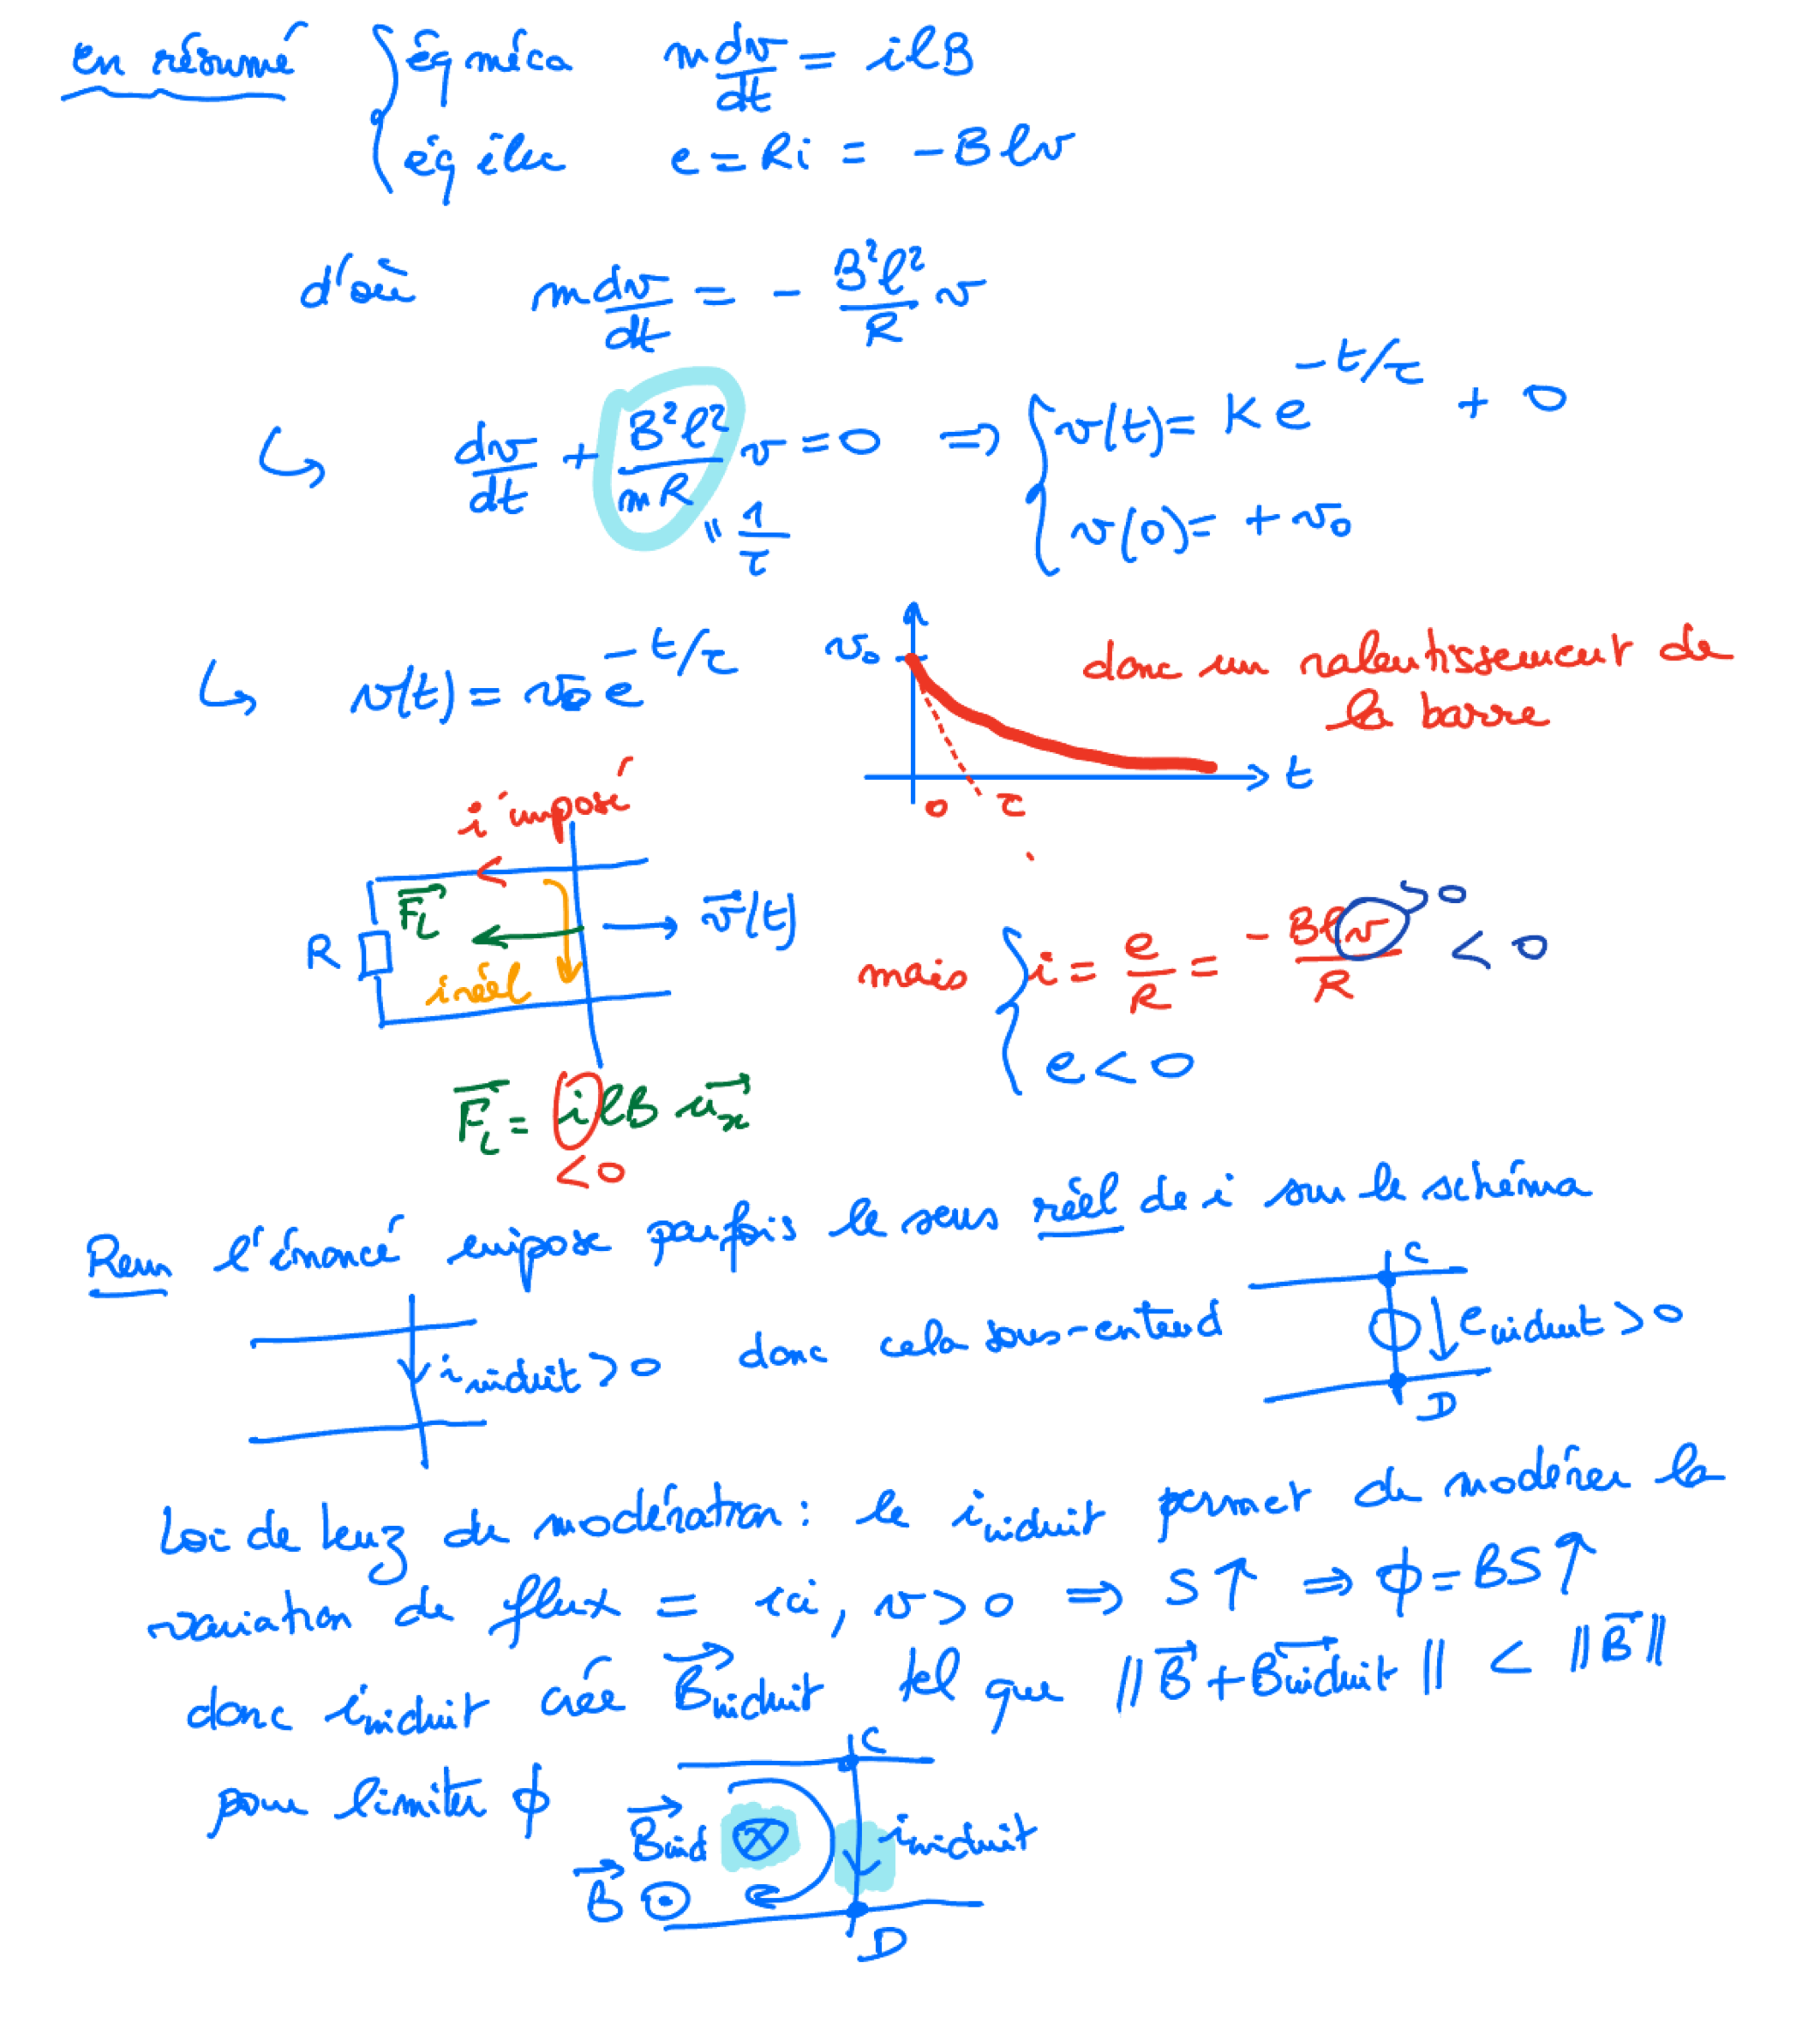 en résumé { éq méca m dv/dt = ilB
éq élec e = Ri = -Blv
d'où m dv/dt = - B²l²/R v
↳ dv/dt + B²l²/mR v = 0 ⇒ { v(t) = K e^{-t/τ} + 0
" 1/τ
v(0) = + v₀
↳ v(t) = v₀ e^{-t/τ}
v₀ donc un ralentissement de
la barre
0 τ t
i imposé
F_L v(t)
R i réel
mais { i = e/R = - Blv/R < 0
>0
e < 0
F_L = ilB u_x
<0
Rem l'énoncé impose parfois le sens réel de i sur le schéma
i induit > 0 donc cela sous-entend C e induit > 0
D
Loi de Lenz de modération : le i induit permet de modérer la
variation de flux = ici, v > 0 ⇒ S ↑ ⇒ ϕ = BS ↑
donc i induit crée B induit tel que ||B + B induit|| < ||B||
pour limiter ϕ
C
B ind ⊗ i induit
B ⊙
D